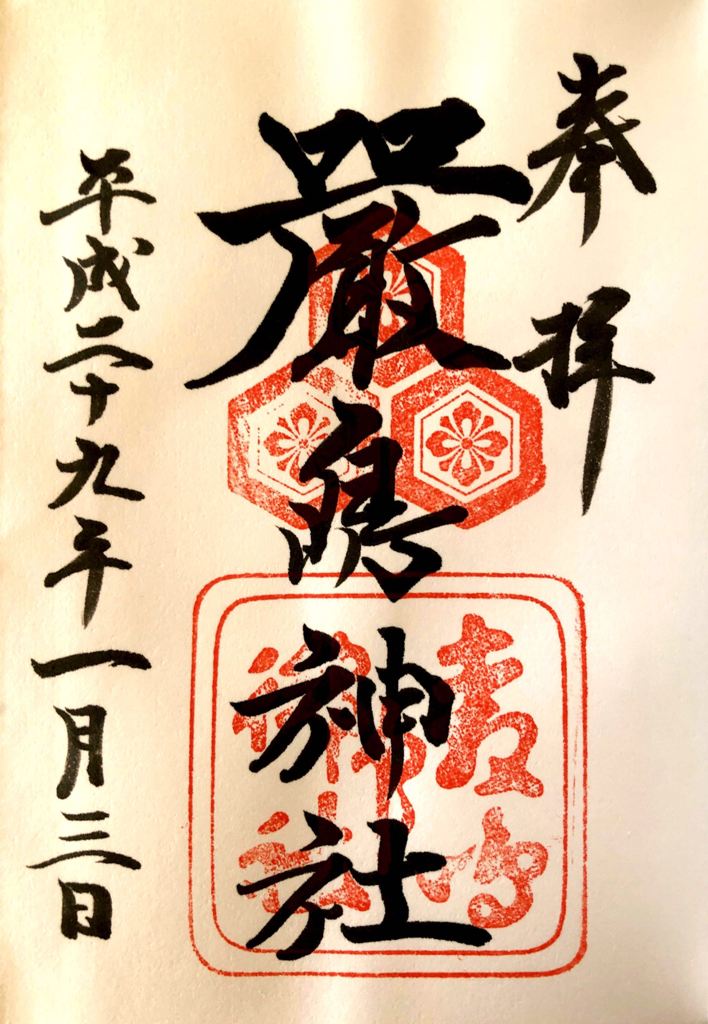 奉拝
嚴島神社
平成二十九年一月三日